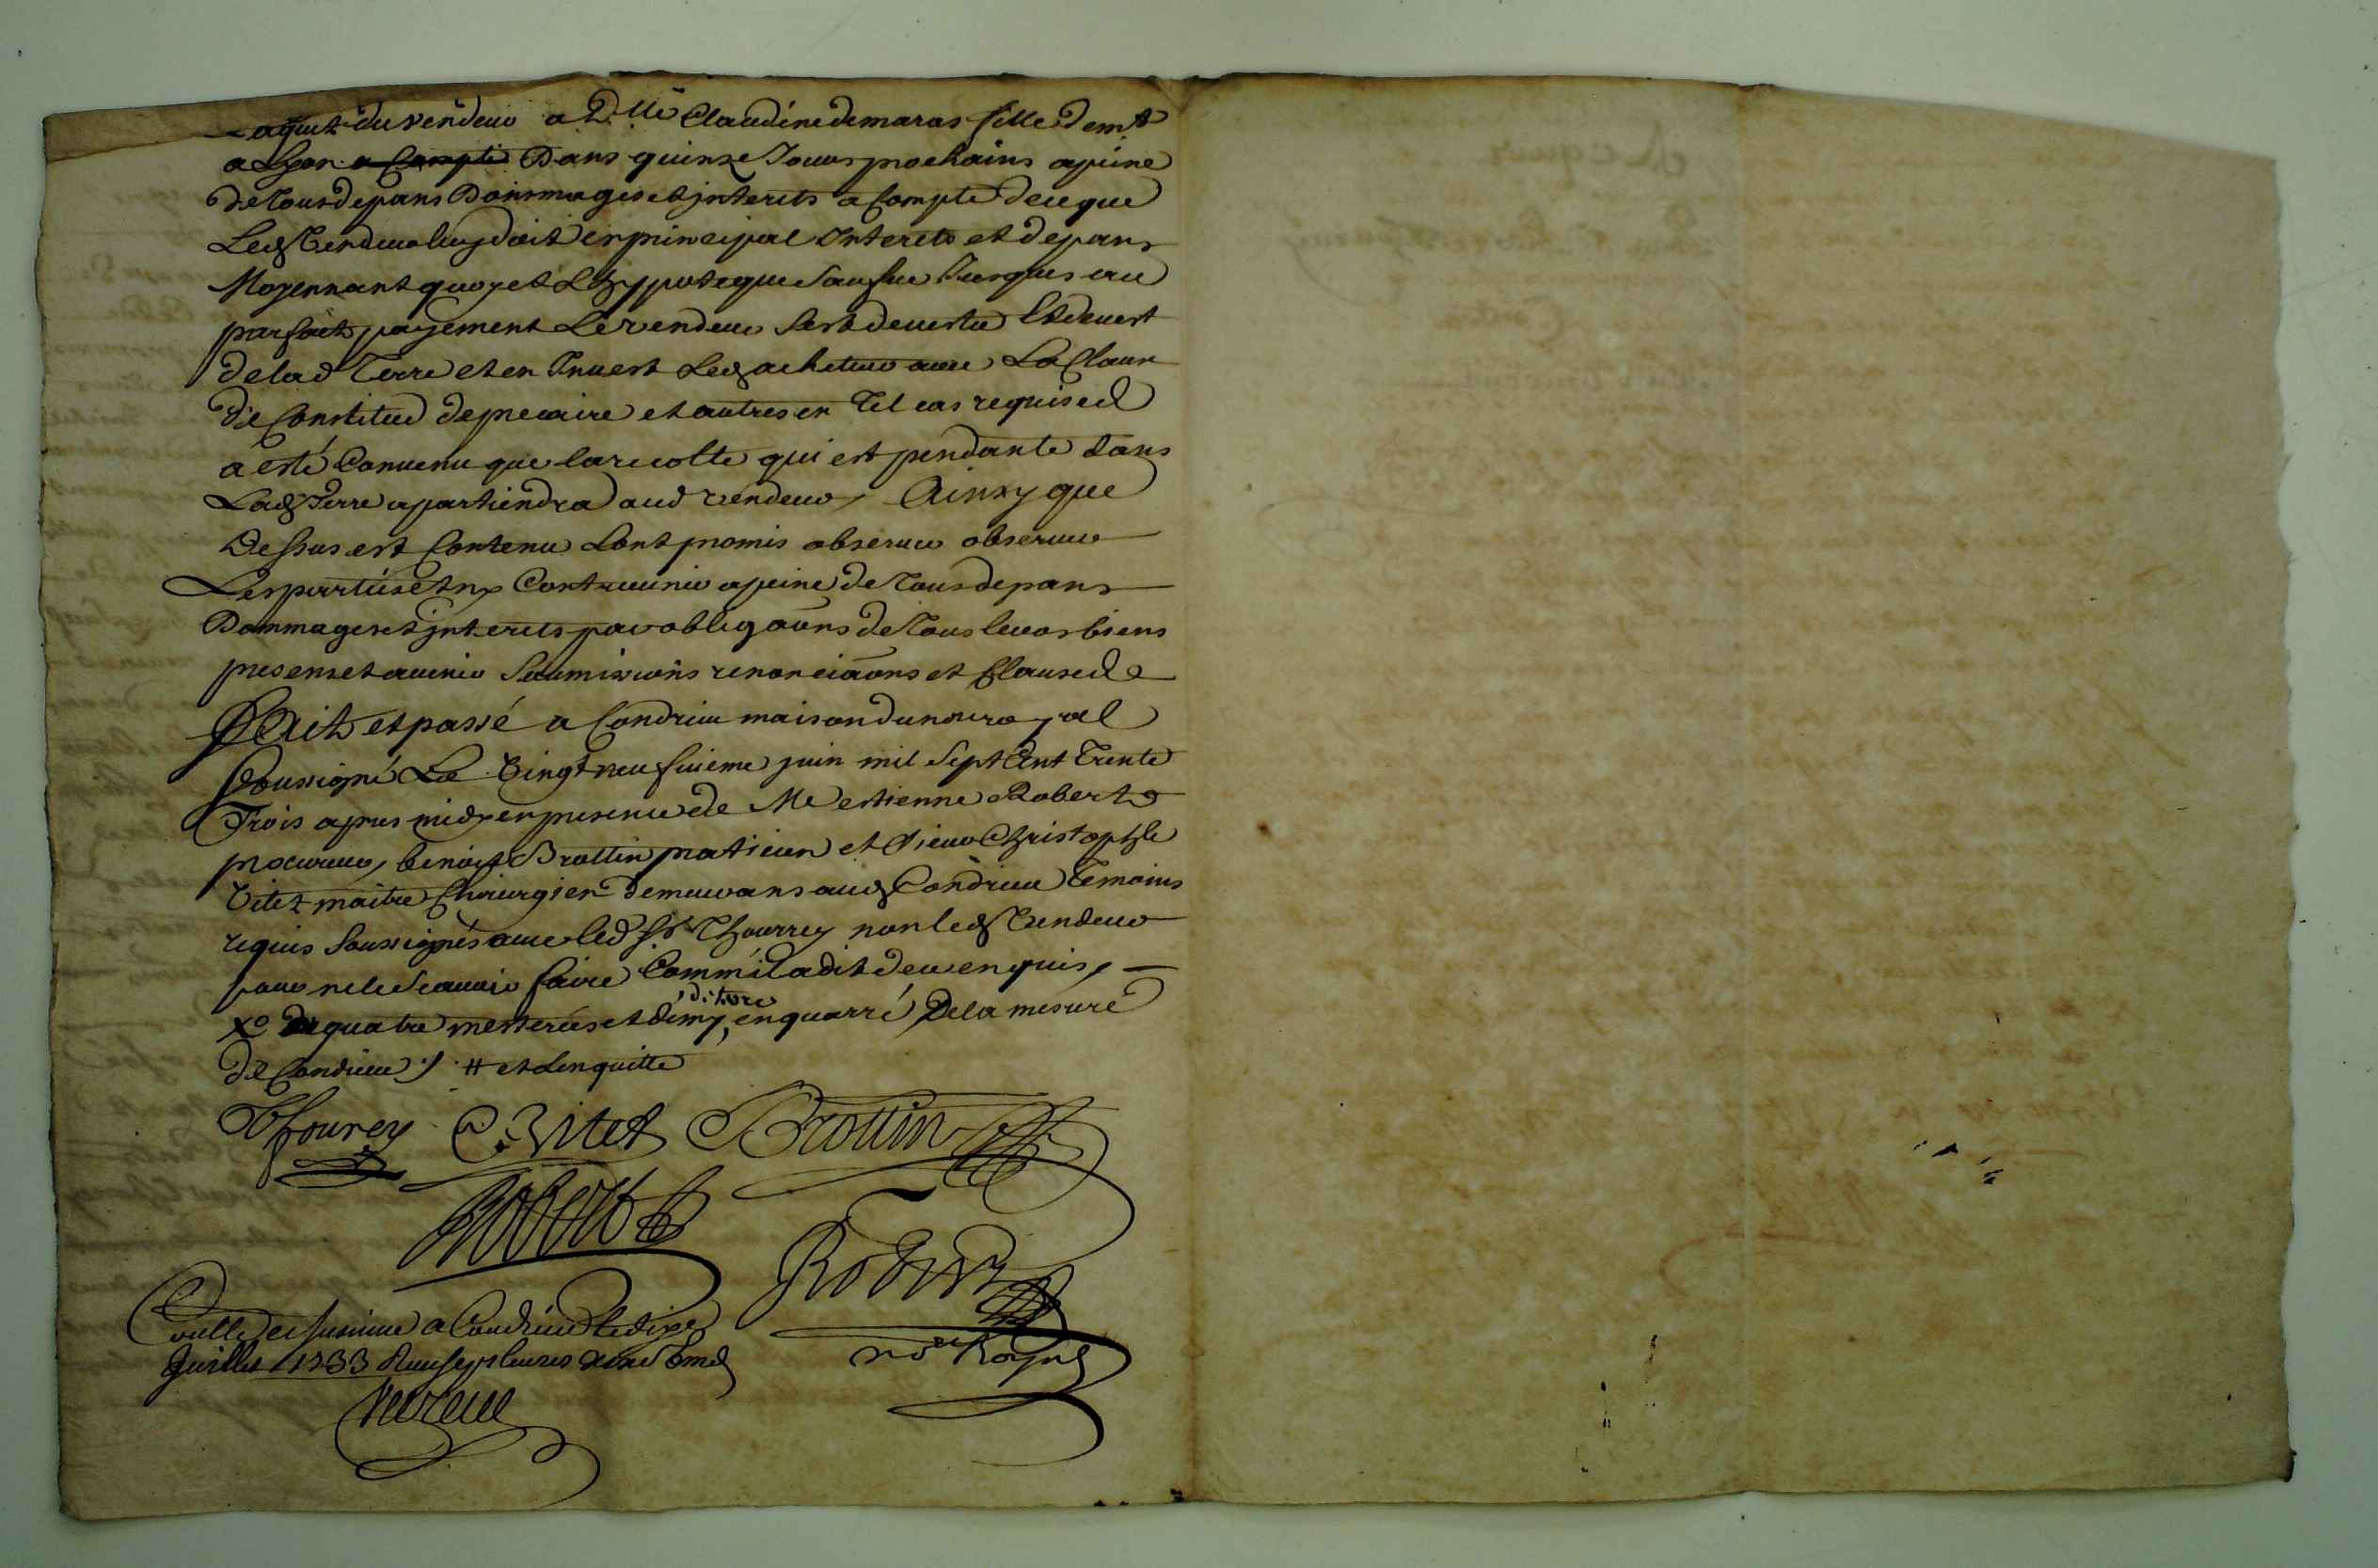 aquit du vendeur a D.lle Claudine demaras fille demt
a Lyon a Compte Dans quinze Jours prochains apeine
de Tous depans Dommages et jnterets a Compte de ce que
Led Vendeur luy doit en principal Interets et depans
Moyennant quoy et Lhyppoteque saufue Jusques au
parfait payement Le vendeur sest devestu Et devest
de lad Terre et en Jnvest Led acheteur avec La Claus
de Constitut de precaire et autres en Tel cas requise Il
a esté Convenu que la recolte qui est pendante dans
Lad Terre apartiendra aud vendeur, Ainsy que
Dessus est Contenu Lont promis observer observer
Les parties et ny Contrevenir apeine de Tous depans
Dommages et jnterets par obligaõns de Tous leurs biens
presens et avenir Soumissions renonciaõns et Clauses
Fait et passé a Condrieu maison du noire royal
Soussigné Le Vingt neufvieme juin mil Sept Cent Trente
Trois apres midy en presence de Me estienne Robert
procureur, benoist Brottin praticien et Sieur Christophle
Vitet maitre Chirurgien demeurans aud Condrieu Temoins
requis Soussignés avec led Sr Thourrey non led Vendeur
pour ne le Scavoir faire Comm'il a dit de ce enquis,
Xo de quatre mesterées et demy, en quarré De la mesure
de Condrieu ./. # et Len quitte
Thourey C. Vitet Brottin
Robert
Robert
Conllé et Insinué a Condrieu le dixe
Juillet 1733 Receu sept livres
nore Royal